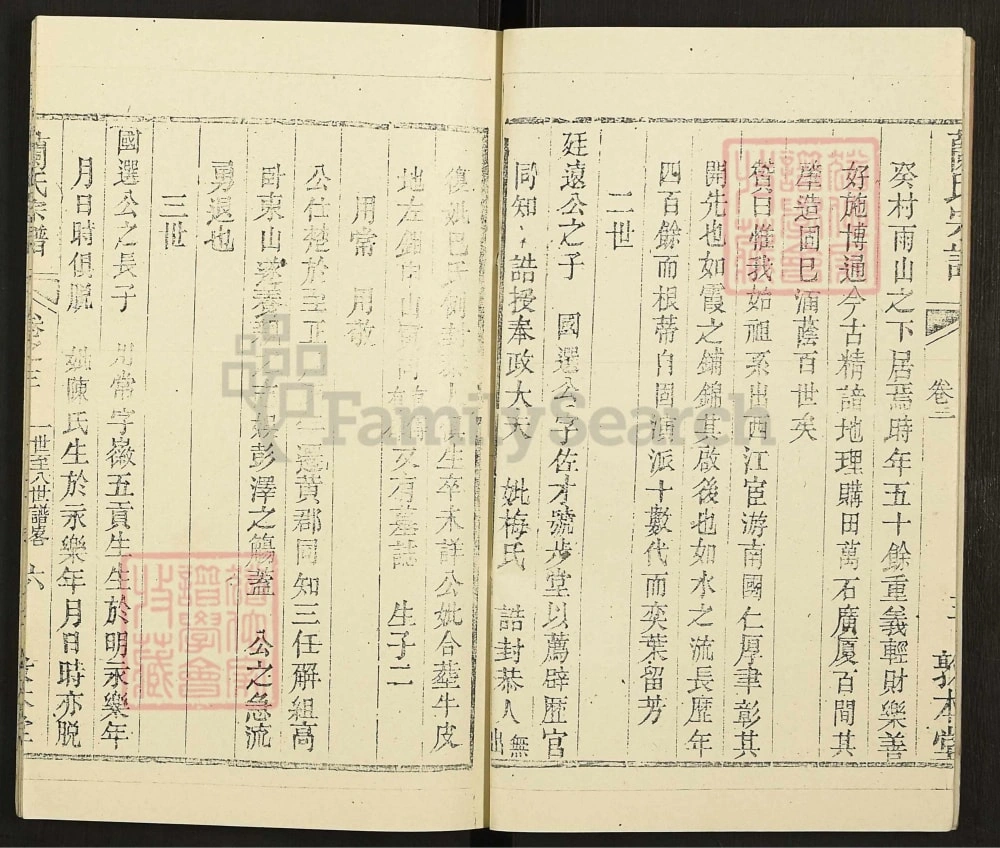 卷三
敦本堂
癸村雨山之下居焉時年五十餘重義輕財樂善
好施博通今古精諳地理購田萬石廣厦百間其
塋造固已涌蔭百世矣
贊曰惟我始祖系出西江宦游南國仁厚聿彰其
開先也如霞之鋪錦其啟後也如水之流長歷年
四百餘而根蒂自固演派十數代而奕葉留芳
二世
廷遠公之子 國選公字佐才號步堂以薦辟歷官
同知 誥授奉政大夫 妣梅氏 誥封恭人無出
復妣巴氏例封 人 生卒未詳公妣合塋牛皮
地左錦中山 向有 又有墓誌 生子二
用常 用敬
公仕楚於至正 遷黃郡同知三任解組高
臥東山 彭澤之觴蓋 公之急流
勇退也
三世
國選公之長子 用常字薇五貢生生於明永樂年
月日時俱脫 妣陳氏生於永樂年月日時亦脫
氏宗譜 卷之三 一世至八世譜畧 六
FamilySearch